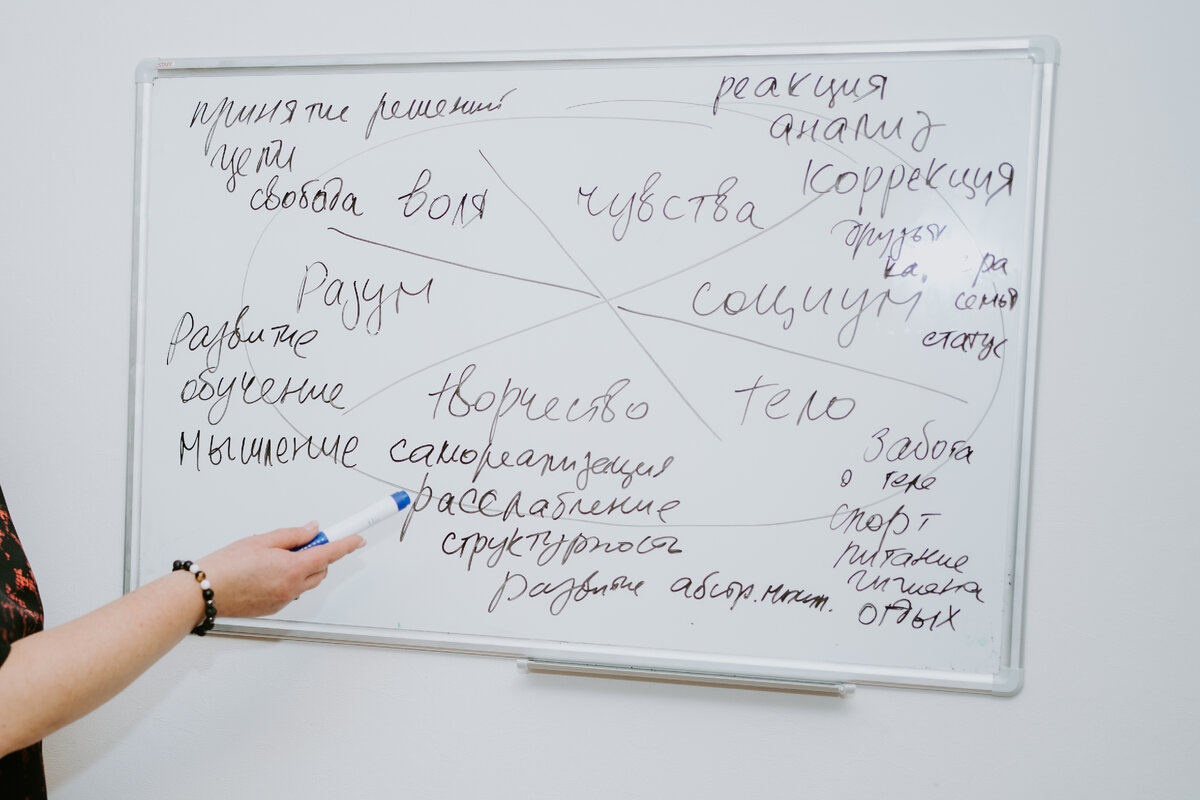 START
принятие решений
цели
свобода воля
Разум
Развитие
обучение
мышление
чувства
реакция
анализ
коррекция
друзья
семья
статус
социум
творчество
самореализация
расслабление
структурность
развитие абстр.
тело
Забота
о теле
спорт
питание
гигиена
отдых